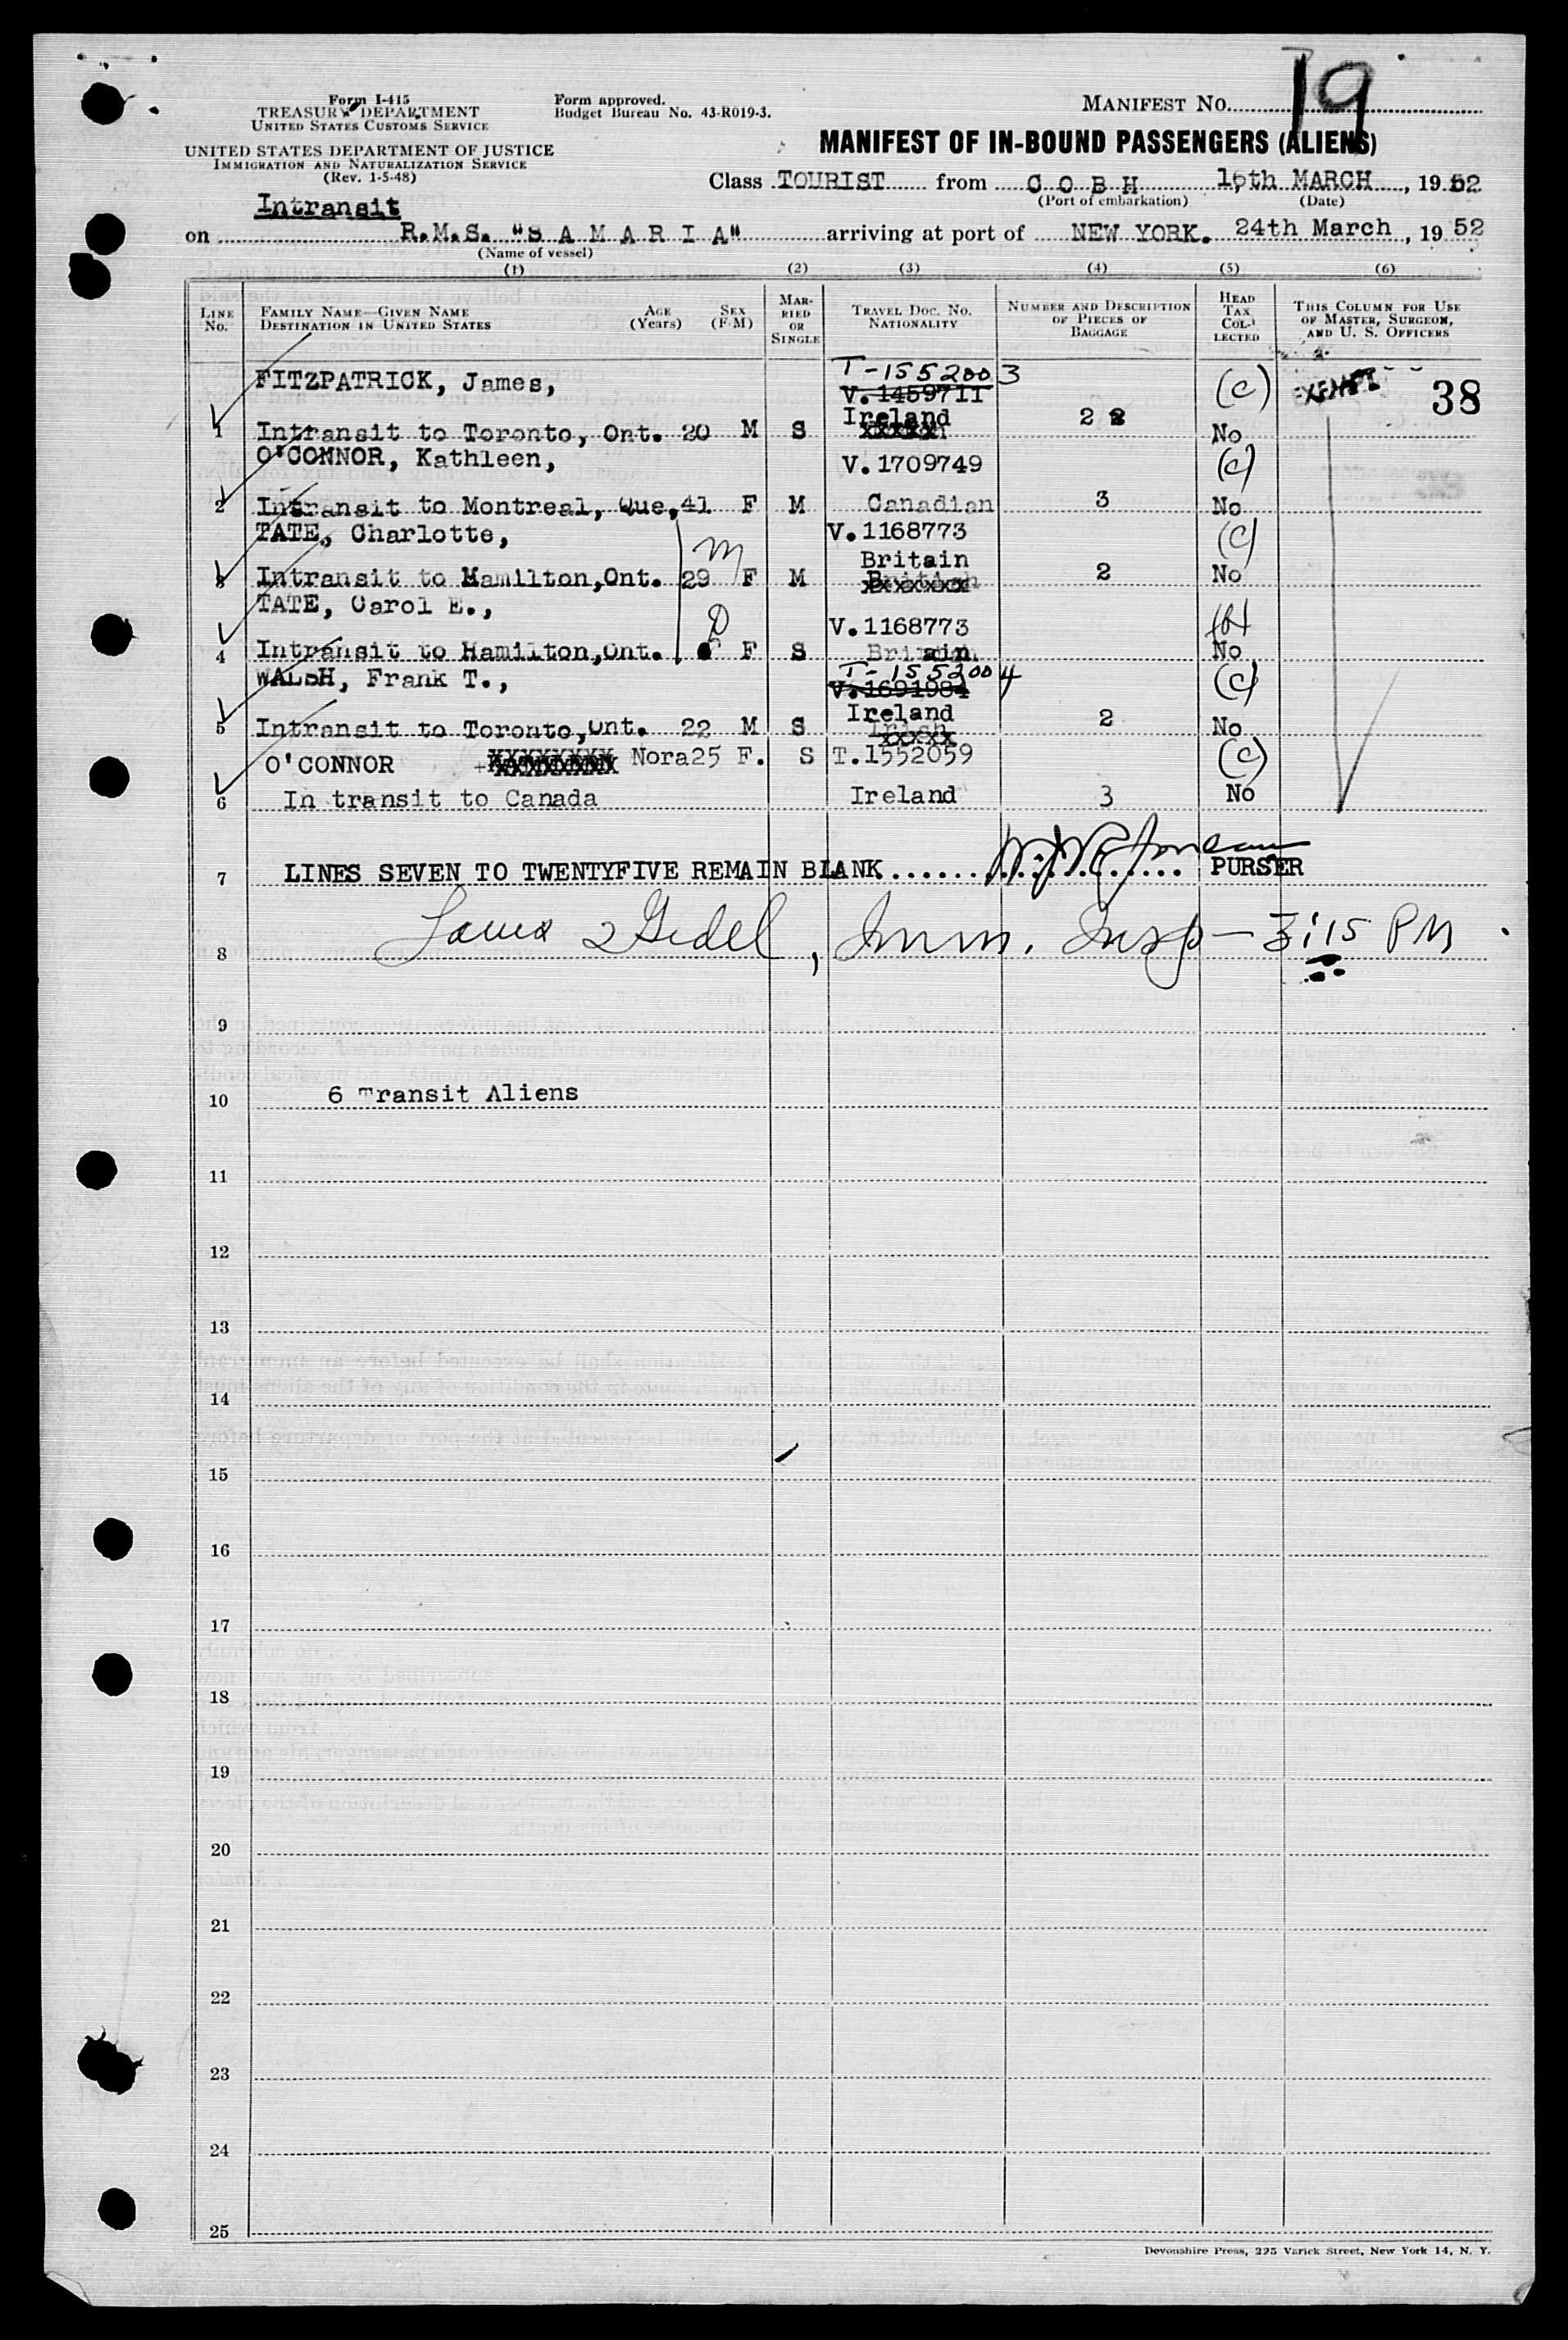 19
Form I-415
TREASURY DEPARTMENT
UNITED STATES CUSTOMS SERVICE
UNITED STATES DEPARTMENT OF JUSTICE
IMMIGRATION AND NATURALIZATION SERVICE
(Rev. 1-5-48)
Form approved.
Budget Bureau No. 43-R019-3.
MANIFEST NO.
MANIFEST OF IN-BOUND PASSENGERS (ALIENS)
Class TOURIST from C O B H 16th MARCH, 1952
(Port of embarkation) (Date)
Intransit
on R.M.S. "S A M A R I A" arriving at port of NEW YORK. 24th March, 1952
(Name of vessel)
(1) (2) (3) (4) (5) (6)
LINE NO. FAMILY NAME—GIVEN NAME DESTINATION IN UNITED STATES AGE (Years) SEX (F-M) MARRIED OR SINGLE TRAVEL DOC. NO. NATIONALITY NUMBER AND DESCRIPTION OF PIECES OF BAGGAGE HEAD TAX COLLECTED THIS COLUMN FOR USE OF MASTER, SURGEON, AND U. S. OFFICERS
FITZPATRICK, James, T-1552003 (C) EXEMPT 38
V.1459711
1 Intransit to Toronto, Ont. 20 M S Ireland 2 No
O'CONNOR, Kathleen, V.1709749 (C)
2 Intransit to Montreal, Que, 41 F M Canadian 3 No
TATE, Charlotte, V.1168773 (C)
M Britain
3 Intransit to Hamilton, Ont. 29 F M British 2 No
TATE, Carol E., D V.1168773
4 Intransit to Hamilton, Ont. F S Britain No
WALSH, Frank T., T-1552004 (C)
V.1691984
5 Intransit to Toronto, Ont. 22 M S Ireland 2 No
Irish
O'CONNOR Nora 25 F. S T.1552059 (C)
6 In transit to Canada Ireland 3 No
7 LINES SEVEN TO TWENTYFIVE REMAIN BLANK.................. PURSER
8 Imm. Insp — 3:15 PM
9
10 6 Transit Aliens
11
12
13
14
15
16
17
18
19
20
21
22
23
24
25
Devonshire Press, 225 Varick Street, New York 14, N. Y.